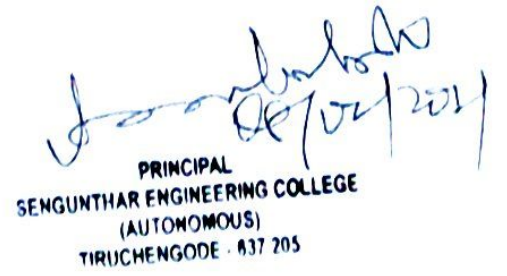 PRINCIPAL
SENGUNTHAR ENGINEERING COLLEGE
(AUTONOMOUS)
TIRUCHENGODE - 637 205